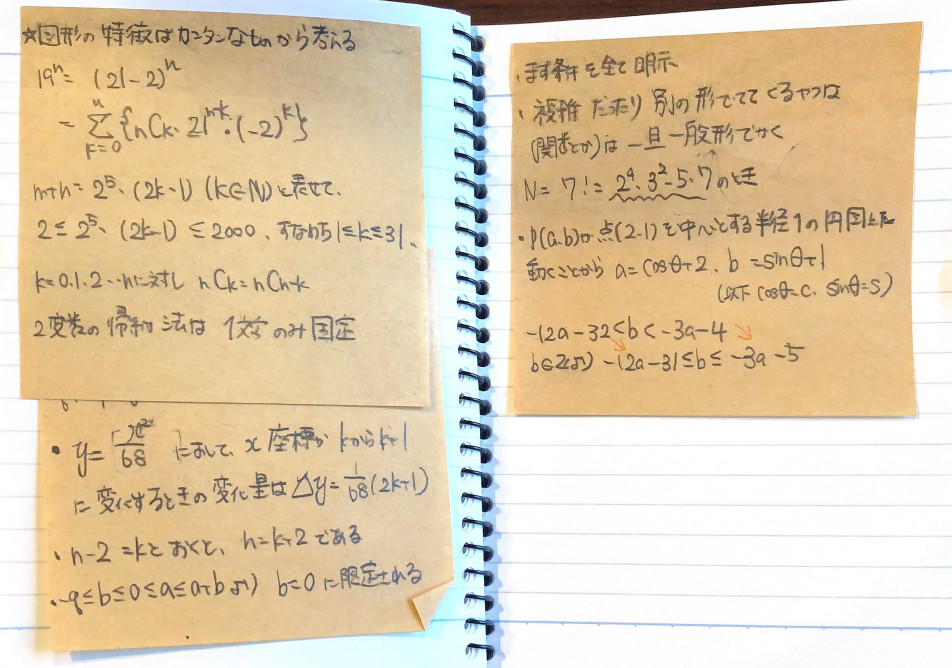 ☆図形の特徴はカンタンなものから考える
19ⁿ = (21-2)ⁿ
= Σ[k=0→n] {nCk・21ⁿ⁻ᵏ・(-2)ᵏ}
m+n = 2⁵・(2k-1) (k∈N)と表せて、
2 ≤ 2⁵・(2k-1) ≤ 2000、すなわち 1≤k≤31、
k=0.1.2…nに対し nCk=nCn-k
2変数の帰納法は 1文字のみ固定
・y= x²/68 において、x座標がkからk+1
に変化するときの変化量は △y=1/68(2k+1)
・n-2=kとおくと、n=k+2である
・-9≤b≤0≤a≤a+bより b=0に限定される
・まず条件を全て明示
・複雑だったり別の形ででてくるヤツは
(関数とか)は一旦一般形でかく
N= 7!= 2⁴・3²・5・7のとき
・P(a,b)が点(2,1)を中心とする半径1の円周上を
動くことから a=cosθ+2、b=sinθ+1
(以下 cosθ=c、sinθ=s)
-12a-32<b<-3a-4
b∈Zより -12a-31≤b≤-3a-5